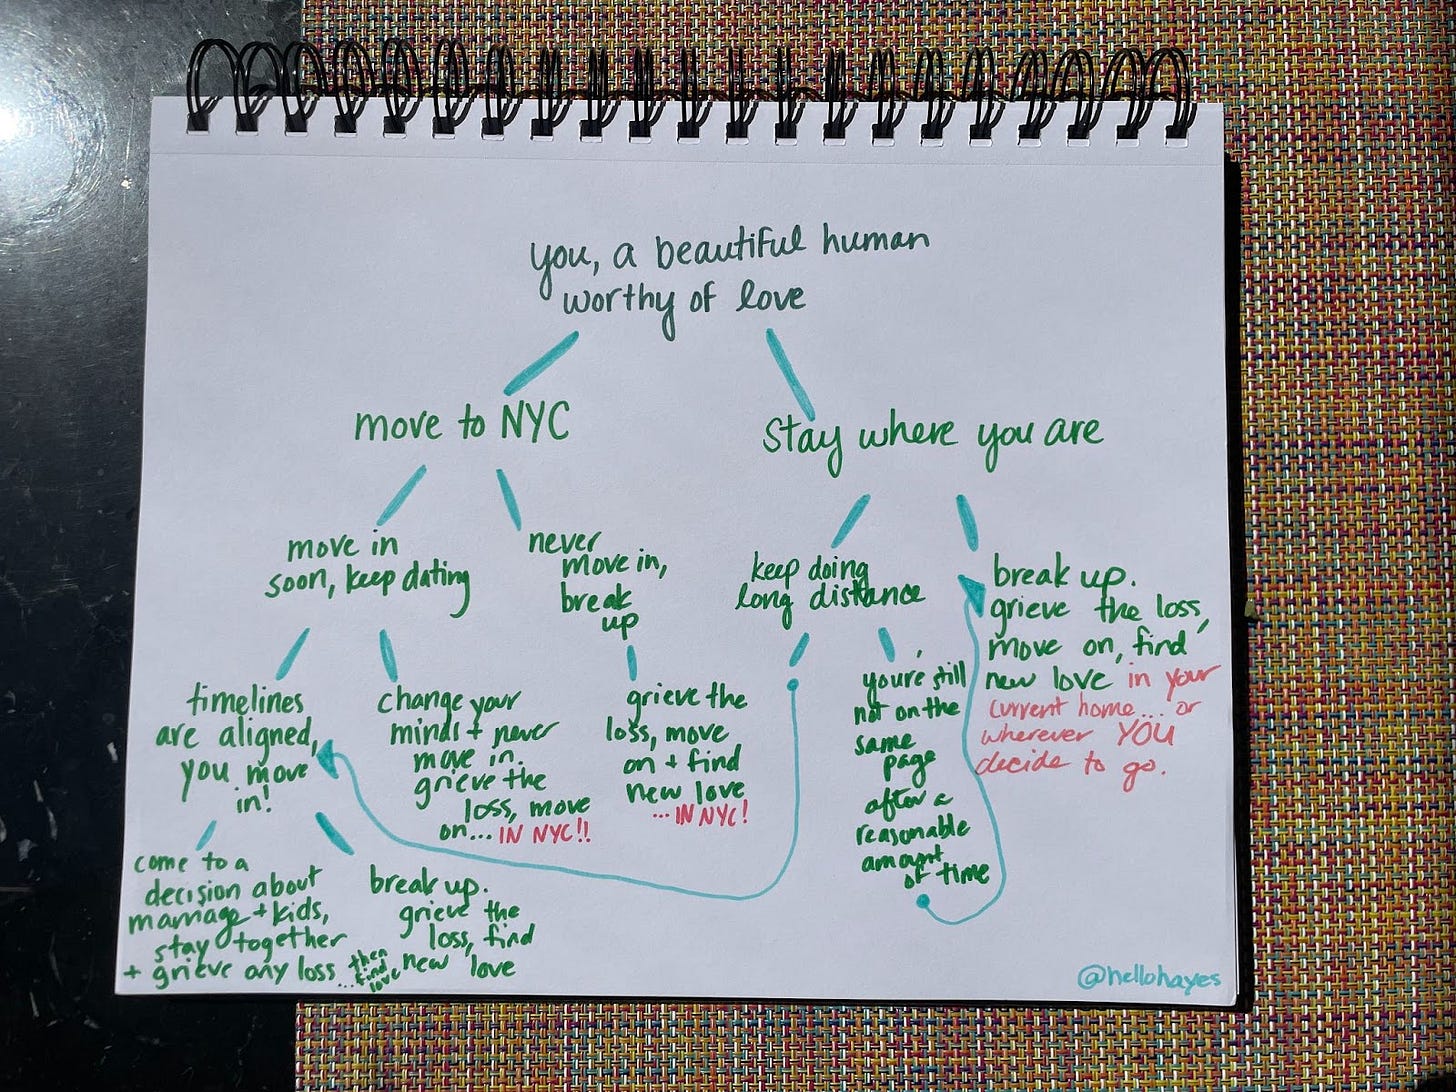 you, a beautiful human
worthy of love
move to NYC
stay where you are
move in
soon, keep dating
never
move in,
break
up
keep doing
long distance
break up.
grieve the loss,
move on, find
new love in your
current home... or
wherever YOU
decide to go.
timelines
are aligned,
you move
in!
change your
minds + never
move in.
grieve the
loss, move
on... IN NYC!!
grieve the
loss, move
on + find
new love
...IN NYC!
you're still
not on the
same
page
after a
reasonable
amount
of time
come to a
decision about
marriage + kids,
stay together
+ grieve any loss
...then
find
love
break up.
grieve the
loss, find
new love
@hellohayes